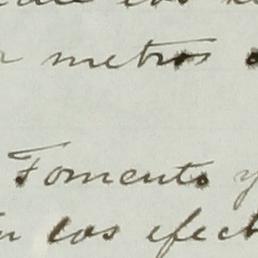 metros
Fomento y
los efect